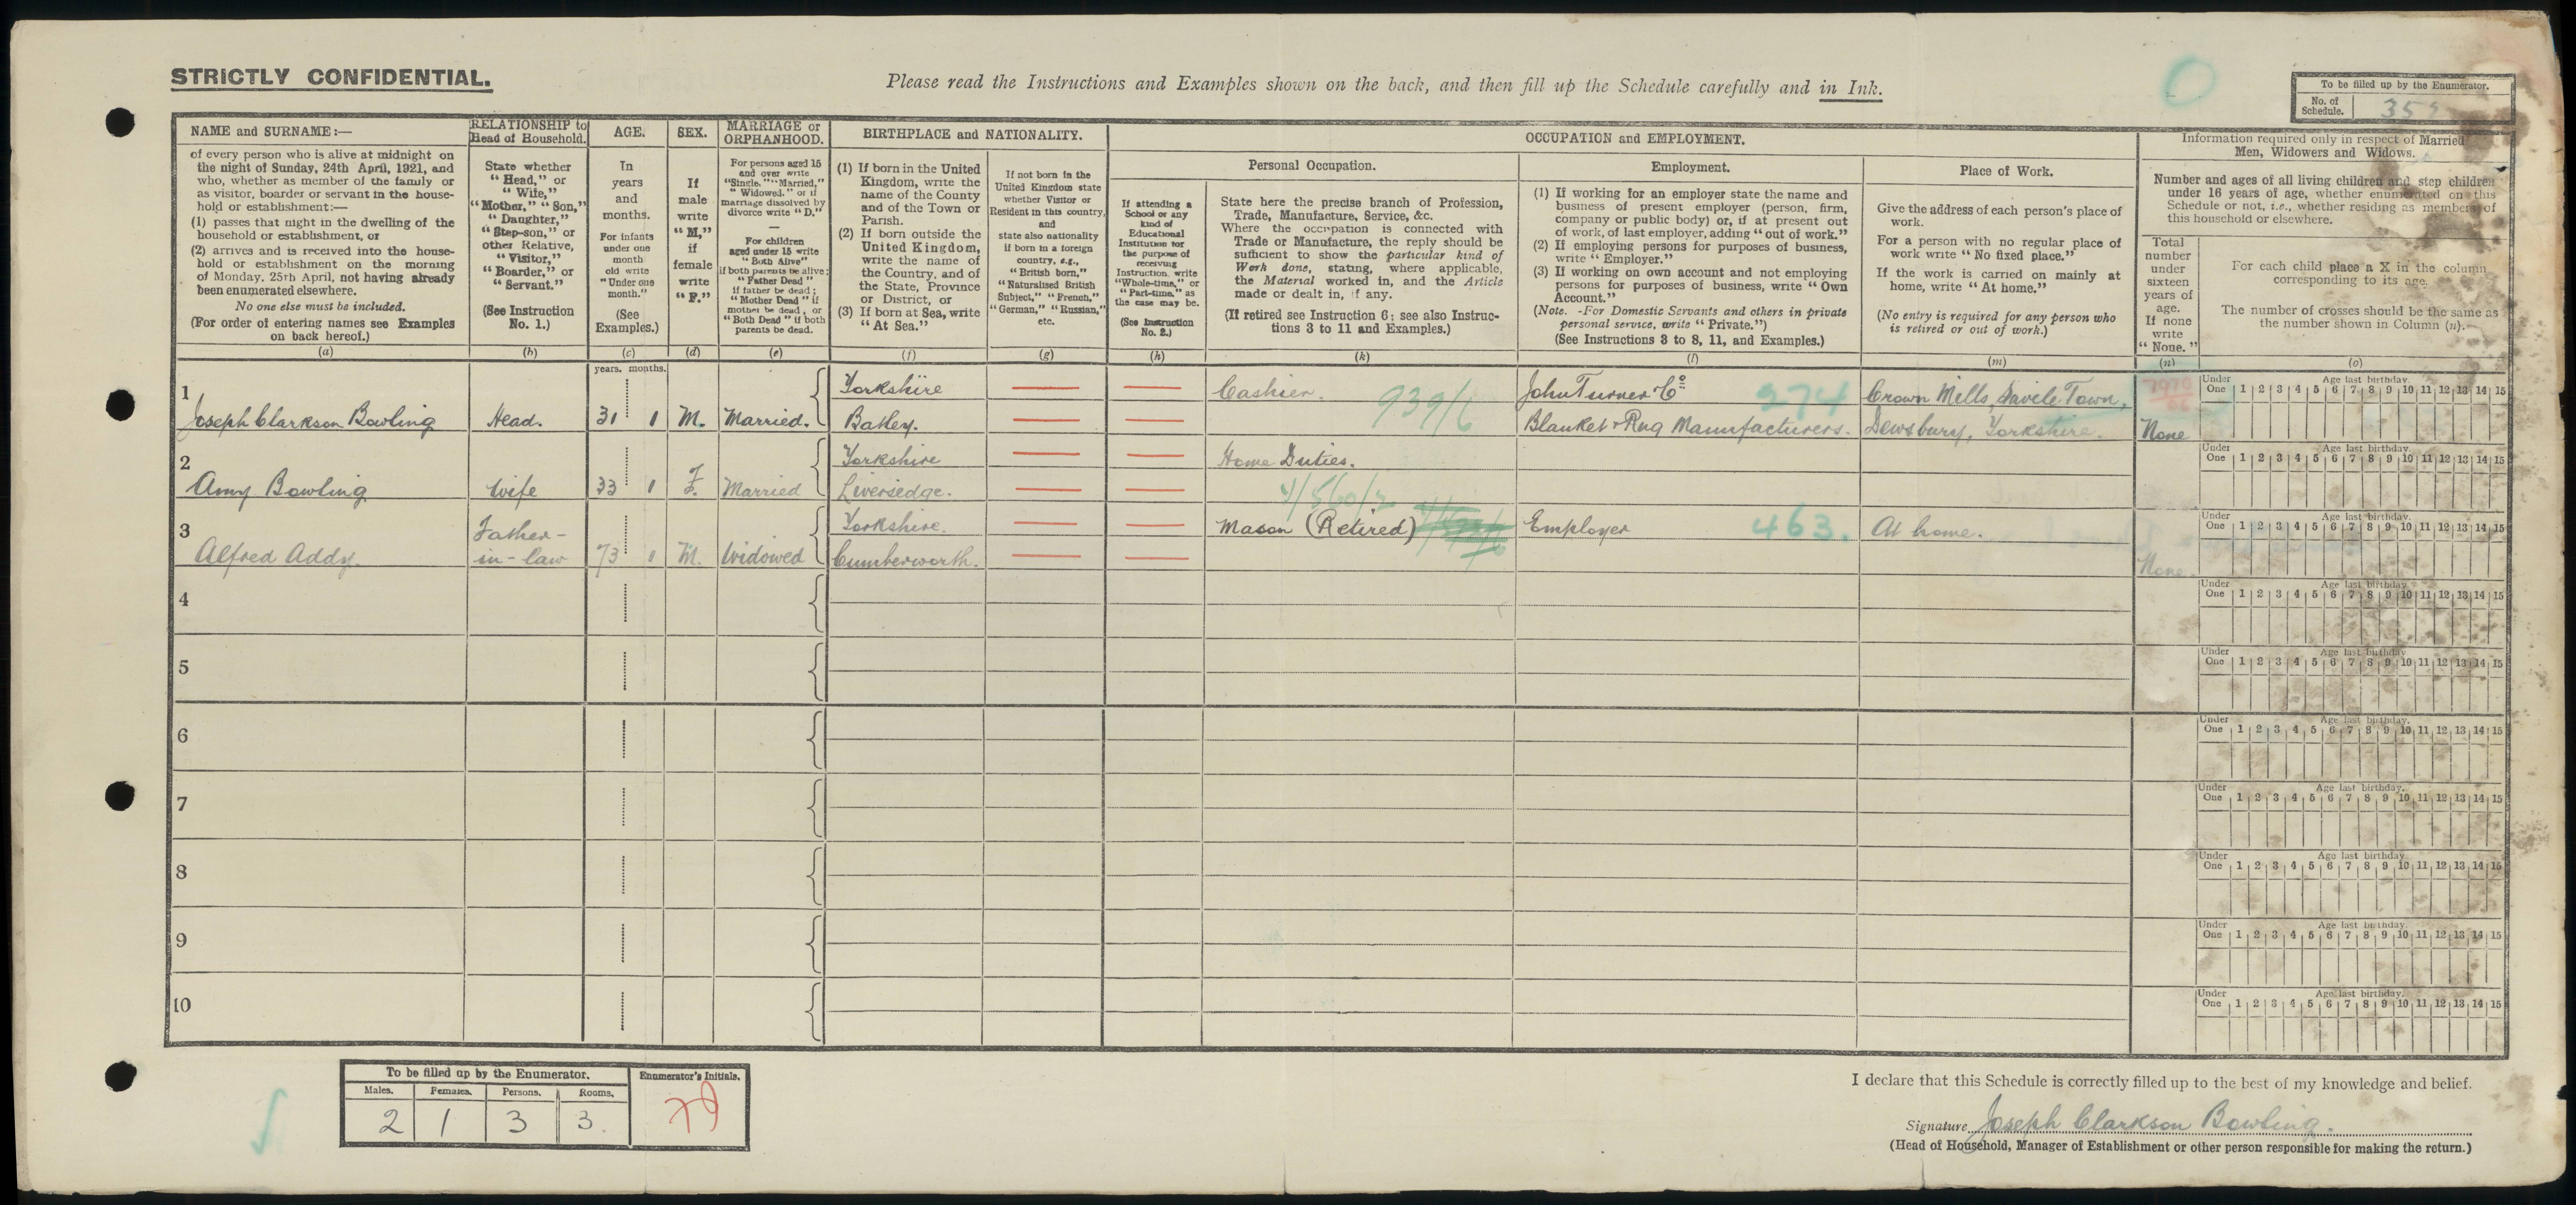 STRICTLY CONFIDENTIAL.
Please read the Instructions and Examples shown on the back, and then fill up the Schedule carefully and in Ink.
To be filled up by the Enumerator.
No. of Schedule.
NAME and SURNAME:—
of every person who is alive at midnight on
the night of Sunday, 24th April, 1921, and
who, whether as member of the family or
as visitor, boarder or servant in the house-
hold or establishment:—
(1) passes that night in the dwelling of the
household or establishment, or
(2) arrives and is received into the house-
hold or establishment on the morning
of Monday, 25th April, not having already
been enumerated elsewhere.
No one else must be included.
(For order of entering names see Examples
on back hereof.)
(a)
RELATIONSHIP to
Head of Household.
State whether
"Head," or
"Wife,"
"Mother," "Son,"
"Daughter,"
"Step-son," or
other Relative,
"Visitor,"
"Boarder," or
"Servant."
(See Instruction
No. 1.)
(b)
AGE.
In
years
and
months.
For infants
under one
month
old write
"Under one
month."
(See
Examples.)
(c)
SEX.
If
male
write
"M,"
if
female
write
"F."
(d)
MARRIAGE or
ORPHANHOOD.
For persons aged 15
and over write
"Single," "Married,"
"Widowed," or if
marriage dissolved by
divorce write "D."
—
For children
aged under 15 write
"Both Alive"
if both parents be alive;
"Father Dead"
if father be dead;
"Mother Dead" if
mother be dead, or
"Both Dead" if both
parents be dead.
(e)
BIRTHPLACE and NATIONALITY.
(1) If born in the United
Kingdom, write the
name of the County
and of the Town or
Parish.
(2) If born outside the
United Kingdom,
write the name of
the Country, and of
the State, Province
or District, or
(3) If born at Sea, write
"At Sea."
(f)
If not born in the
United Kingdom state
whether Visitor or
Resident in this country,
and
state also nationality
if born in a foreign
country, e.g.,
"British born,"
"Naturalised British
Subject," "French,"
"German," "Russian,"
etc.
(g)
OCCUPATION and EMPLOYMENT.
If attending a
School or any
kind of
Educational
Institution for
the purpose of
receiving
Instruction, write
"Whole-time," or
"Part-time," as
the case may be.
(See Instruction
No. 2.)
(h)
Personal Occupation.
State here the precise branch of Profession,
Trade, Manufacture, Service, &c.
Where the occupation is connected with
Trade or Manufacture, the reply should be
sufficient to show the particular kind of
Work done, stating, where applicable,
the Material worked in, and the Article
made or dealt in, if any.
(If retired see Instruction 6; see also Instruc-
tions 3 to 11 and Examples.)
(k)
Employment.
(1) If working for an employer state the name and
business of present employer (person, firm,
company or public body) or, if at present out
of work, of last employer, adding "out of work."
(2) If employing persons for purposes of business,
write "Employer."
(3) If working on own account and not employing
persons for purposes of business, write "Own
Account."
(Note. -For Domestic Servants and others in private
personal service, write "Private.")
(See Instructions 3 to 8, 11, and Examples.)
(l)
Place of Work.
Give the address of each person's place of
work.
For a person with no regular place of
work write "No fixed place."
If the work is carried on mainly at
home, write "At home."
(No entry is required for any person who
is retired or out of work.)
(m)
Information required only in respect of Married
Men, Widowers and Widows.
Number and ages of all living children and step children
under 16 years of age, whether enumerated on this
Schedule or not, i.e., whether residing as members of
this household or elsewhere.
Total
number
under
sixteen
years of
age.
If none
write
"None."
(n)
For each child place a X in the column
corresponding to its age.
The number of crosses should be the same as
the number shown in Column (n).
(o)
years. months.
1 Joseph Clarkson Bowling Head. 31 1 M. Married. Yorkshire Batley. Cashier. 939/6 John Turner & Co Blanket & Rug Manufacturers. 274 Crown Mills, Savile Town, Dewsbury, Yorkshire. None
Under One Age last birthday. 1 2 3 4 5 6 7 8 9 10 11 12 13 14 15
2 Amy Bowling Wife 33 1 F. Married Yorkshire Liversedge. Home Duties.
Under One Age last birthday. 1 2 3 4 5 6 7 8 9 10 11 12 13 14 15
3 Alfred Addy. Father-in-law 73 1 M. Widowed Yorkshire. Cumberworth. Mason (Retired) Employer 463. At home. None.
Under One Age last birthday. 1 2 3 4 5 6 7 8 9 10 11 12 13 14 15
4
Under One Age last birthday. 1 2 3 4 5 6 7 8 9 10 11 12 13 14 15
5
Under One Age last birthday 1 2 3 4 5 6 7 8 9 10 11 12 13 14 15
6
Under One Age last birthday. 1 2 3 4 5 6 7 8 9 10 11 12 13 14 15
7
Under One Age last birthday. 1 2 3 4 5 6 7 8 9 10 11 12 13 14 15
8
Under One Age last birthday. 1 2 3 4 5 6 7 8 9 10 11 12 13 14 15
9
Under One Age last birthday. 1 2 3 4 5 6 7 8 9 10 11 12 13 14 15
10
Under One Age last birthday. 1 2 3 4 5 6 7 8 9 10 11 12 13 14 15
To be filled up by the Enumerator. Enumerator's Initials.
Males. Females. Persons. Rooms.
2 1 3 3.
I declare that this Schedule is correctly filled up to the best of my knowledge and belief.
Signature Joseph Clarkson Bowling.
(Head of Household, Manager of Establishment or other person responsible for making the return.)